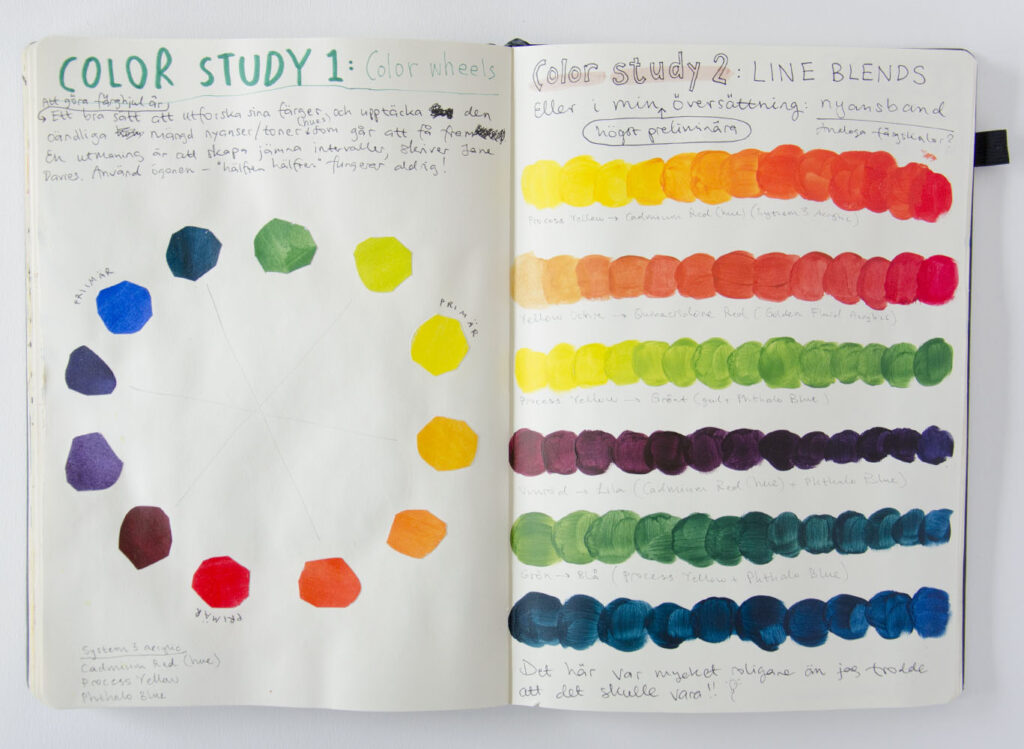 COLOR STUDY 1: Color wheels
Att göra färghjul är
Ett bra sätt att utforska sina färger och upptäcka den
(hues)
oändliga mängd nyanser/toner som går att få fram
En utmaning är att skapa jämna intervaller, skriver Jane
Davies. Använd ögonen – "hälften hälften" fungerar aldrig!
PRIMÄR
PRIMÄR
PRIMÄR
System 3 acrylic
Cadmium Red (hue)
Process Yellow
Phthalo Blue
Color study 2: LINE BLENDS
Eller i min översättning: nyansband
högst preliminära
färgskalor?
Process Yellow → Cadmium Red (hue) (System 3 Acrylic)
Yellow Ochre → Quinacridone Red (Golden Fluid Acrylic)
Process Yellow → Grönt (gul + Phthalo Blue)
Vinröd → Lila (Cadmium Red (hue) + Phthalo Blue)
Grön → Blå (Process Yellow + Phthalo Blue)
Det här var mycket roligare än jag trodde
att det skulle vara!!